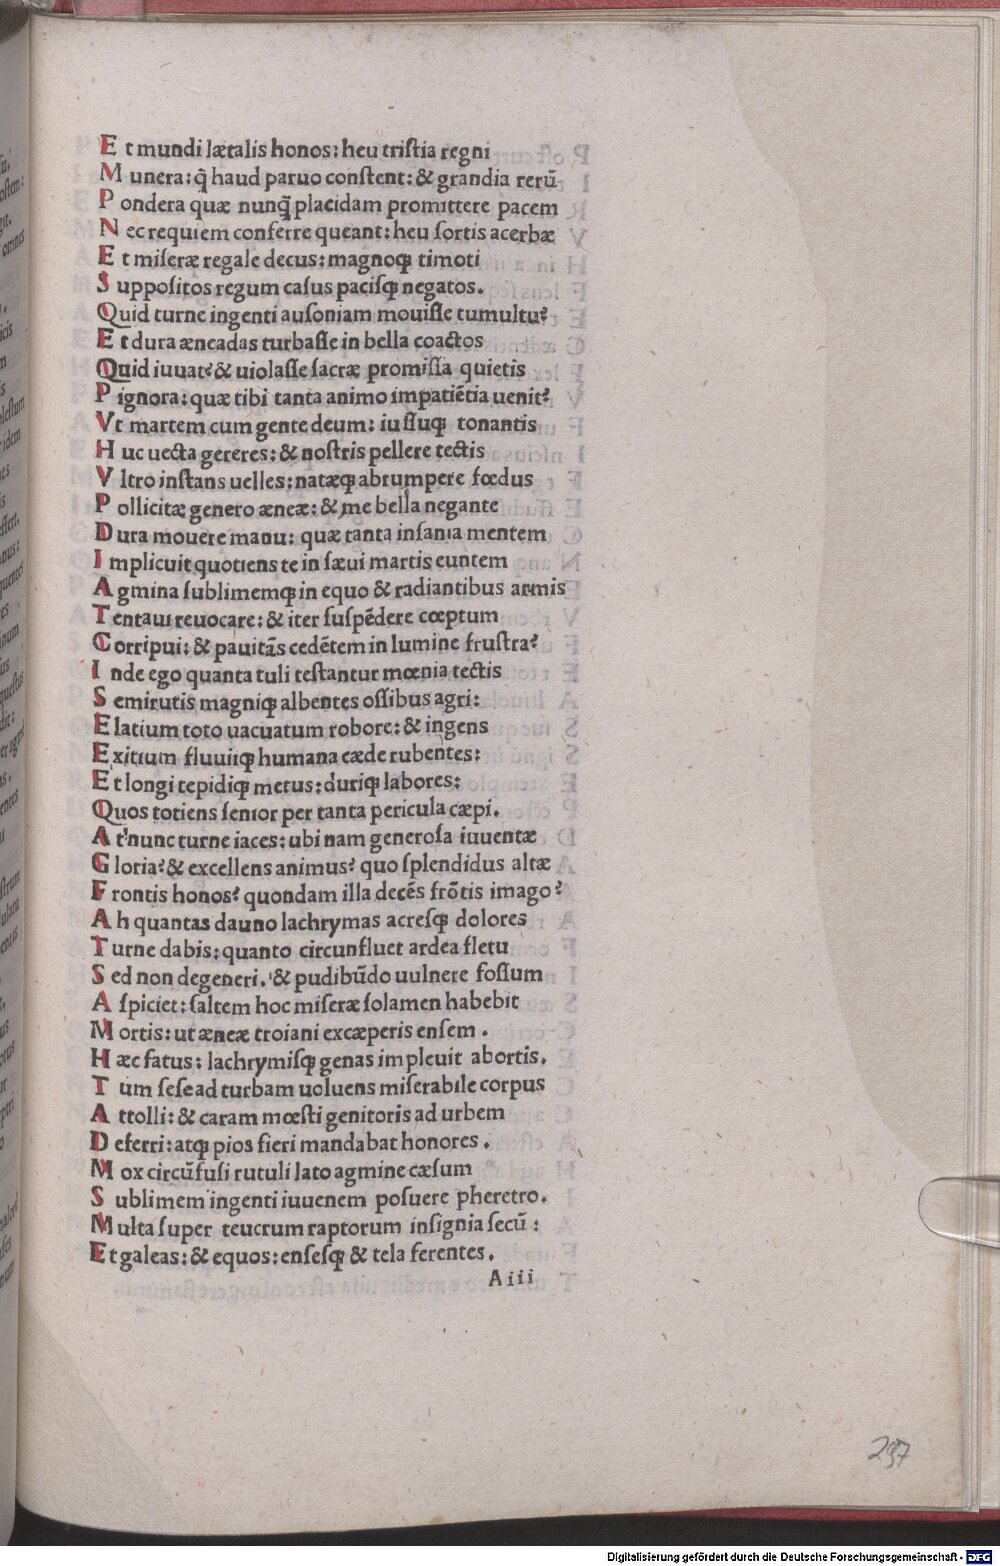 E t mundi lætalis honos: heu triſtia regni
M unera: q̃ haud paruo conſtent: & grandia rerū
P ondera quæ nunq̃ placidam promittere pacem
N ec requiem conferre queant: heu ſortis acerbæ
E t miſeræ regale decus: magnoqꝫ timoti
S uppoſitos regum caſus paciſqꝫ negatos.
Quid turne ingenti auſoniam mouiſſe tumultu?
E t dura æneadas turbaſſe in bella coactos
Quid iuuat? & uiolaſſe ſacræ promiſſa quietis
P ignora: quæ tibi tanta animo impatiētia uenit?
Vt martem cum gente deum: iuſſuqꝫ tonantis
H uc uecta gereres: & noſtris pellere tectis
V ltro inſtans uelles: natæqꝫ abrumpere fœdus
P ollicitæ genero æneæ: & me bella negante
D ura mouere manu: quæ tanta inſania mentem
I mplicuit quotiens te in ſæui martis euntem
A gmina ſublimemqꝫ in equo & radiantibus armis
T entaui reuocare: & iter ſuſpēdere cœptum
C orripui: & pauitās cedētem in lumine fruſtra?
I nde ego quanta tuli teſtantur mœnia tectis
S emirutis magniqꝫ albentes oſſibus agri:
E latium toto uacuatum robore: & ingens
E xitium fluuiiqꝫ humana cæde rubentes:
E t longi tepidiqꝫ metus: duriqꝫ labores:
Quos totiens ſenior per tanta pericula cæpi.
A t nunc turne iaces: ubi nam generoſa iuuentæ
G loria? & excellens animus? quo ſplendidus altæ
F rontis honos? quondam illa decēs frōtis imago?
A h quantas dauno lachrymas acreſqꝫ dolores
T urne dabis: quanto circunfluet ardea fletu
S ed non degeneri. & pudibūdo uulnere foſſum
A ſpiciet: ſaltem hoc miſeræ ſolamen habebit
M ortis: ut æneæ troiani excæperis enſem.
H æc fatus: lachrymiſqꝫ genas impleuit abortis.
T um ſeſe ad turbam uoluens miſerabile corpus
A ttolli: & caram mœſti genitoris ad urbem
D eferri: atqꝫ pios fieri mandabat honores.
M ox circūfuſi rutuli lato agmine cæſum
S ublimem ingenti iuuenem poſuere pheretro.
M ulta ſuper teucrum raptorum inſignia ſecū:
E t galeas: & equos: enſeſqꝫ & tela ferentes.
A iii
297
Digitalisierung gefördert durch die Deutsche Forschungsgemeinschaft - DFG